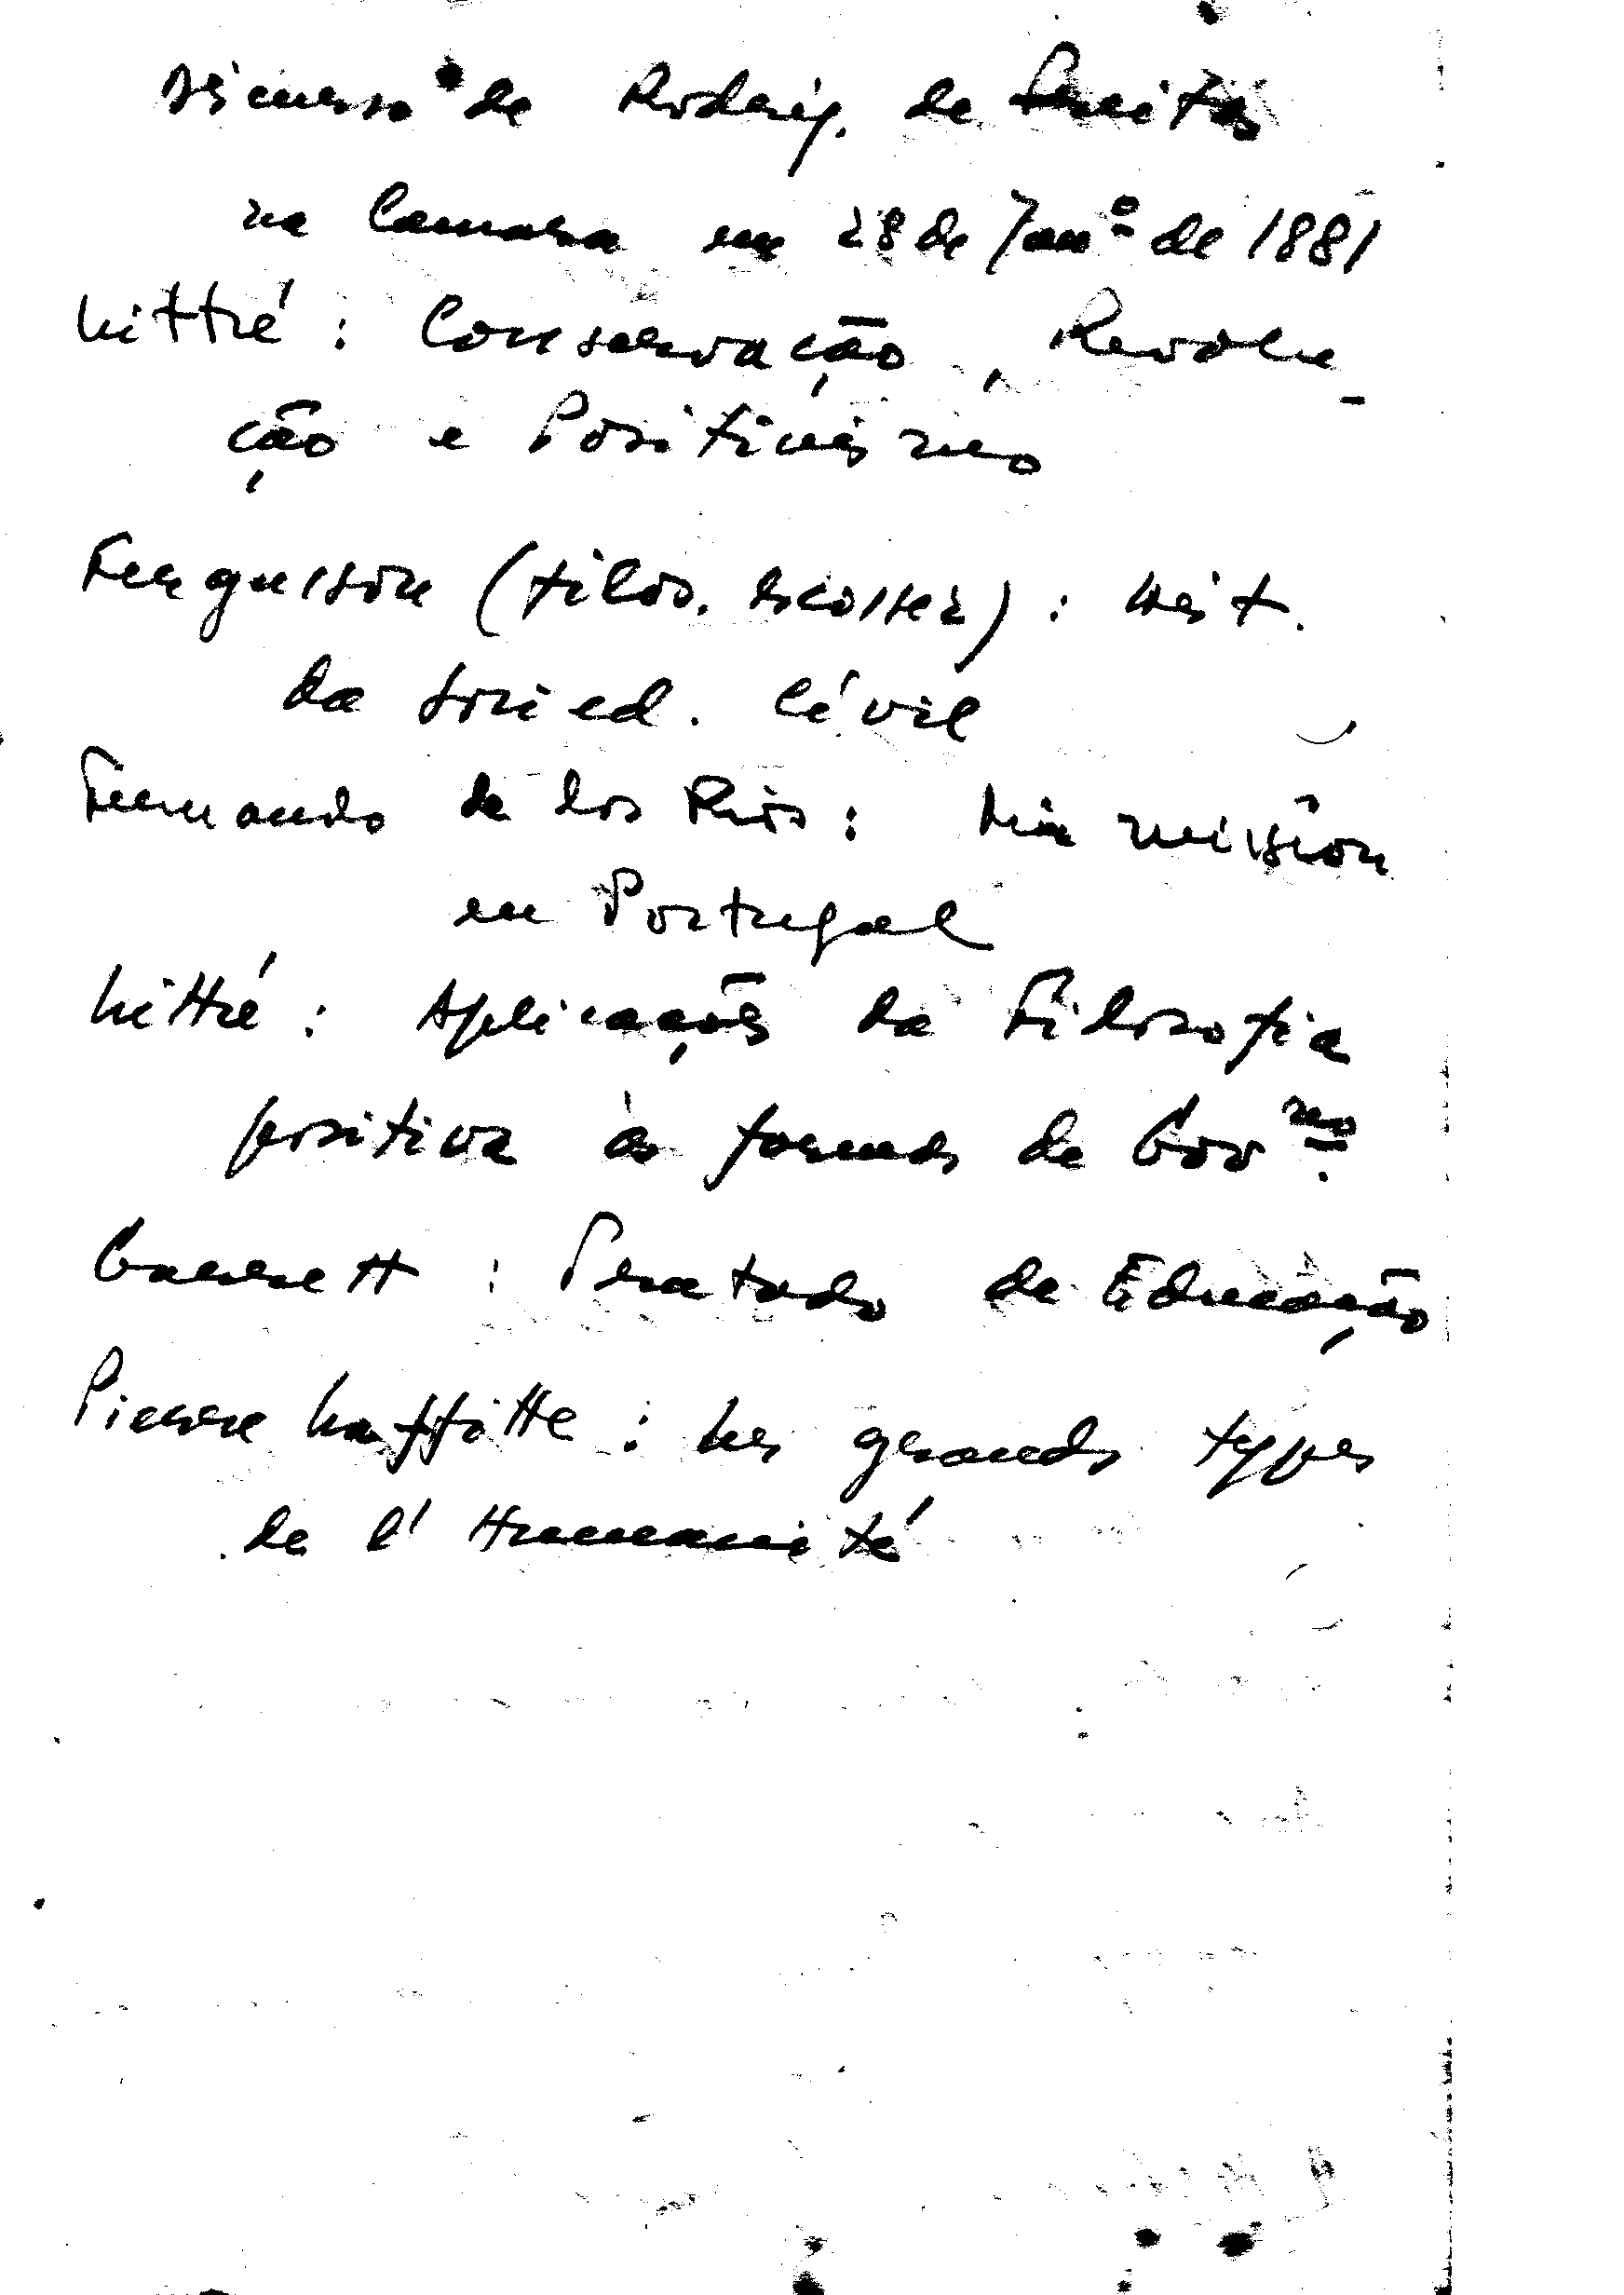 Discurso de Rodrig. de Freitas
na Camara em 28 de Jan.º de 1881
Littré: Conservação, Revolu-
ção e Positivismo
Fergusson (filos. escossez): Hist.
da Socied. Civil
Fernando de los Rios: Mia misión
en Portugal
Littré: Aplicações da Filosofia
positiva às formas de Gov.no
Garrett: Tratado de Educação
Pierre Laffitte: Les grands types
de l'Humanité